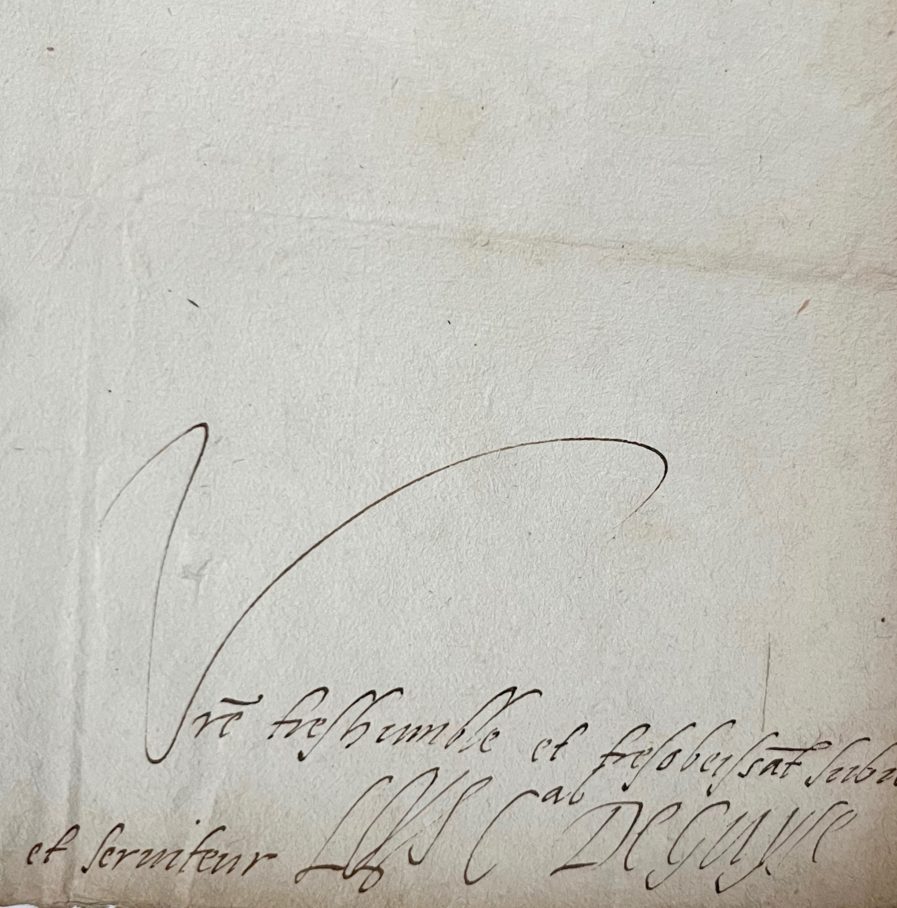 Vrē treshumble et tresobeissāt subi
et seruiteur LOYS Cᵃˡ DE Guyse